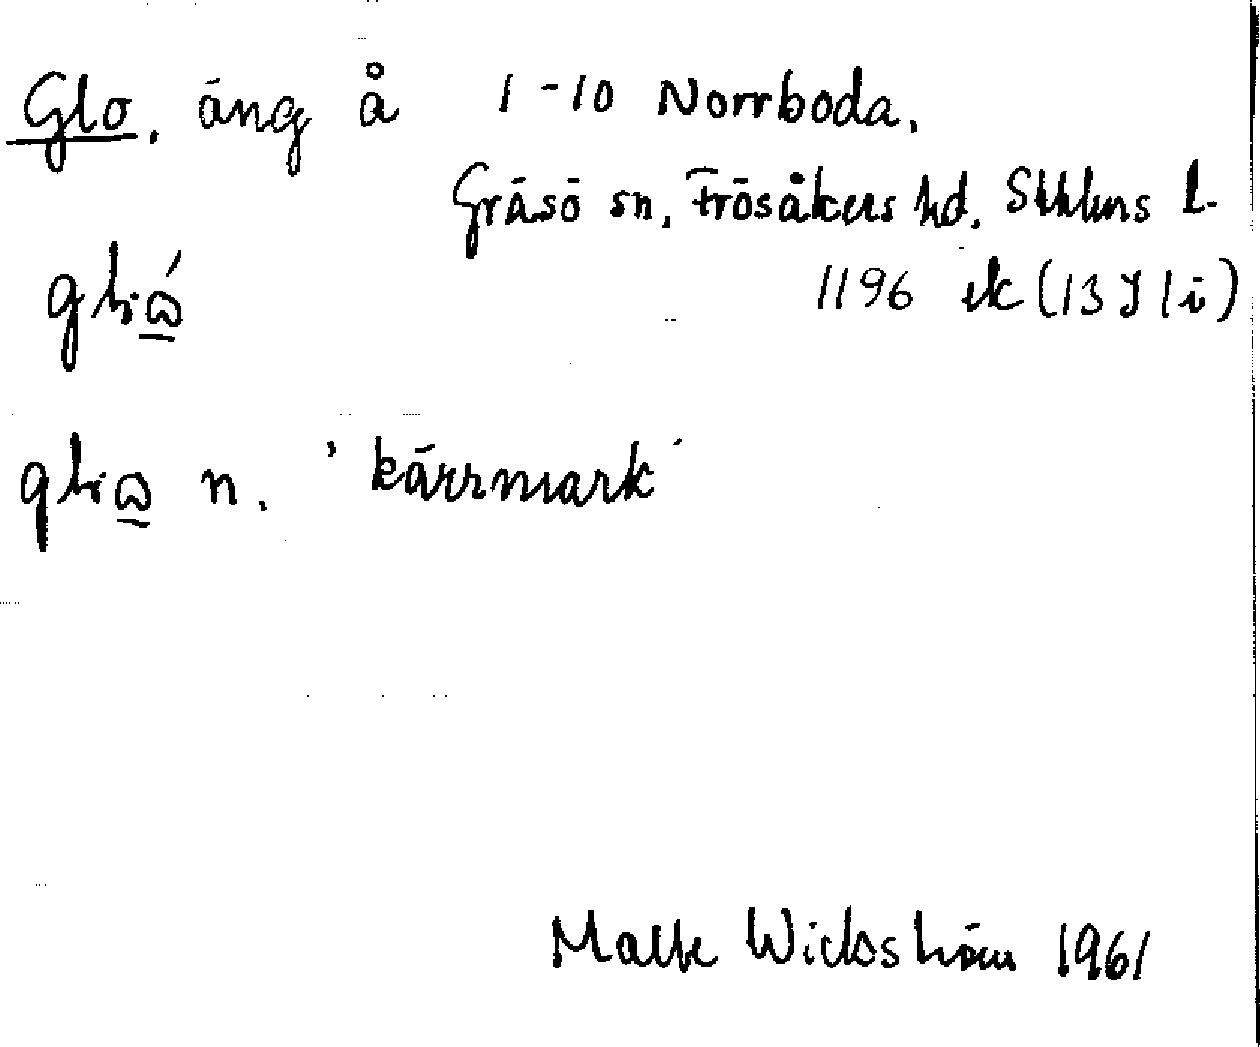 Glo, äng å 1-10 Norrboda,
Gräsö sn, Frösåkers hd, Sthlms l.
1196 ek (13J 1i)
n. 'kärrmark'
Wickström 1961